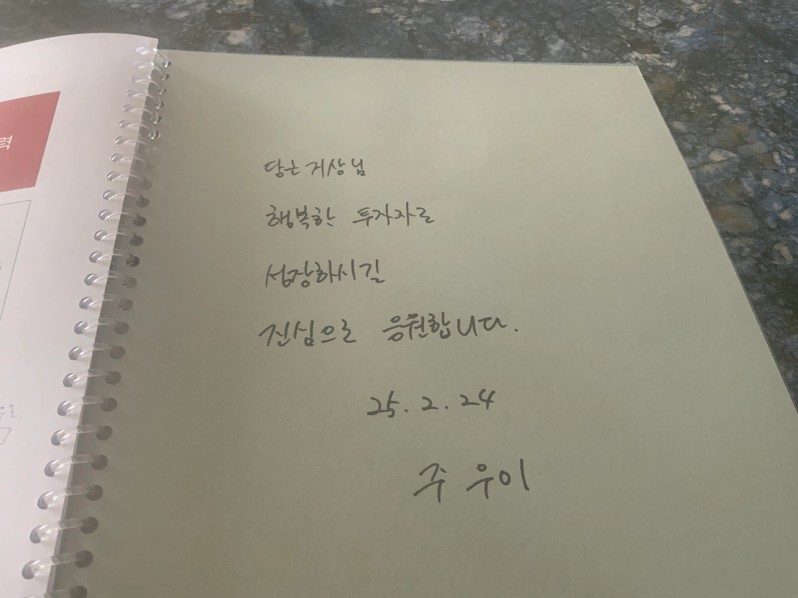 력
당근거상님
행복한 투자자로
성장하시길
진심으로 응원합니다.
25.2.24
주우이